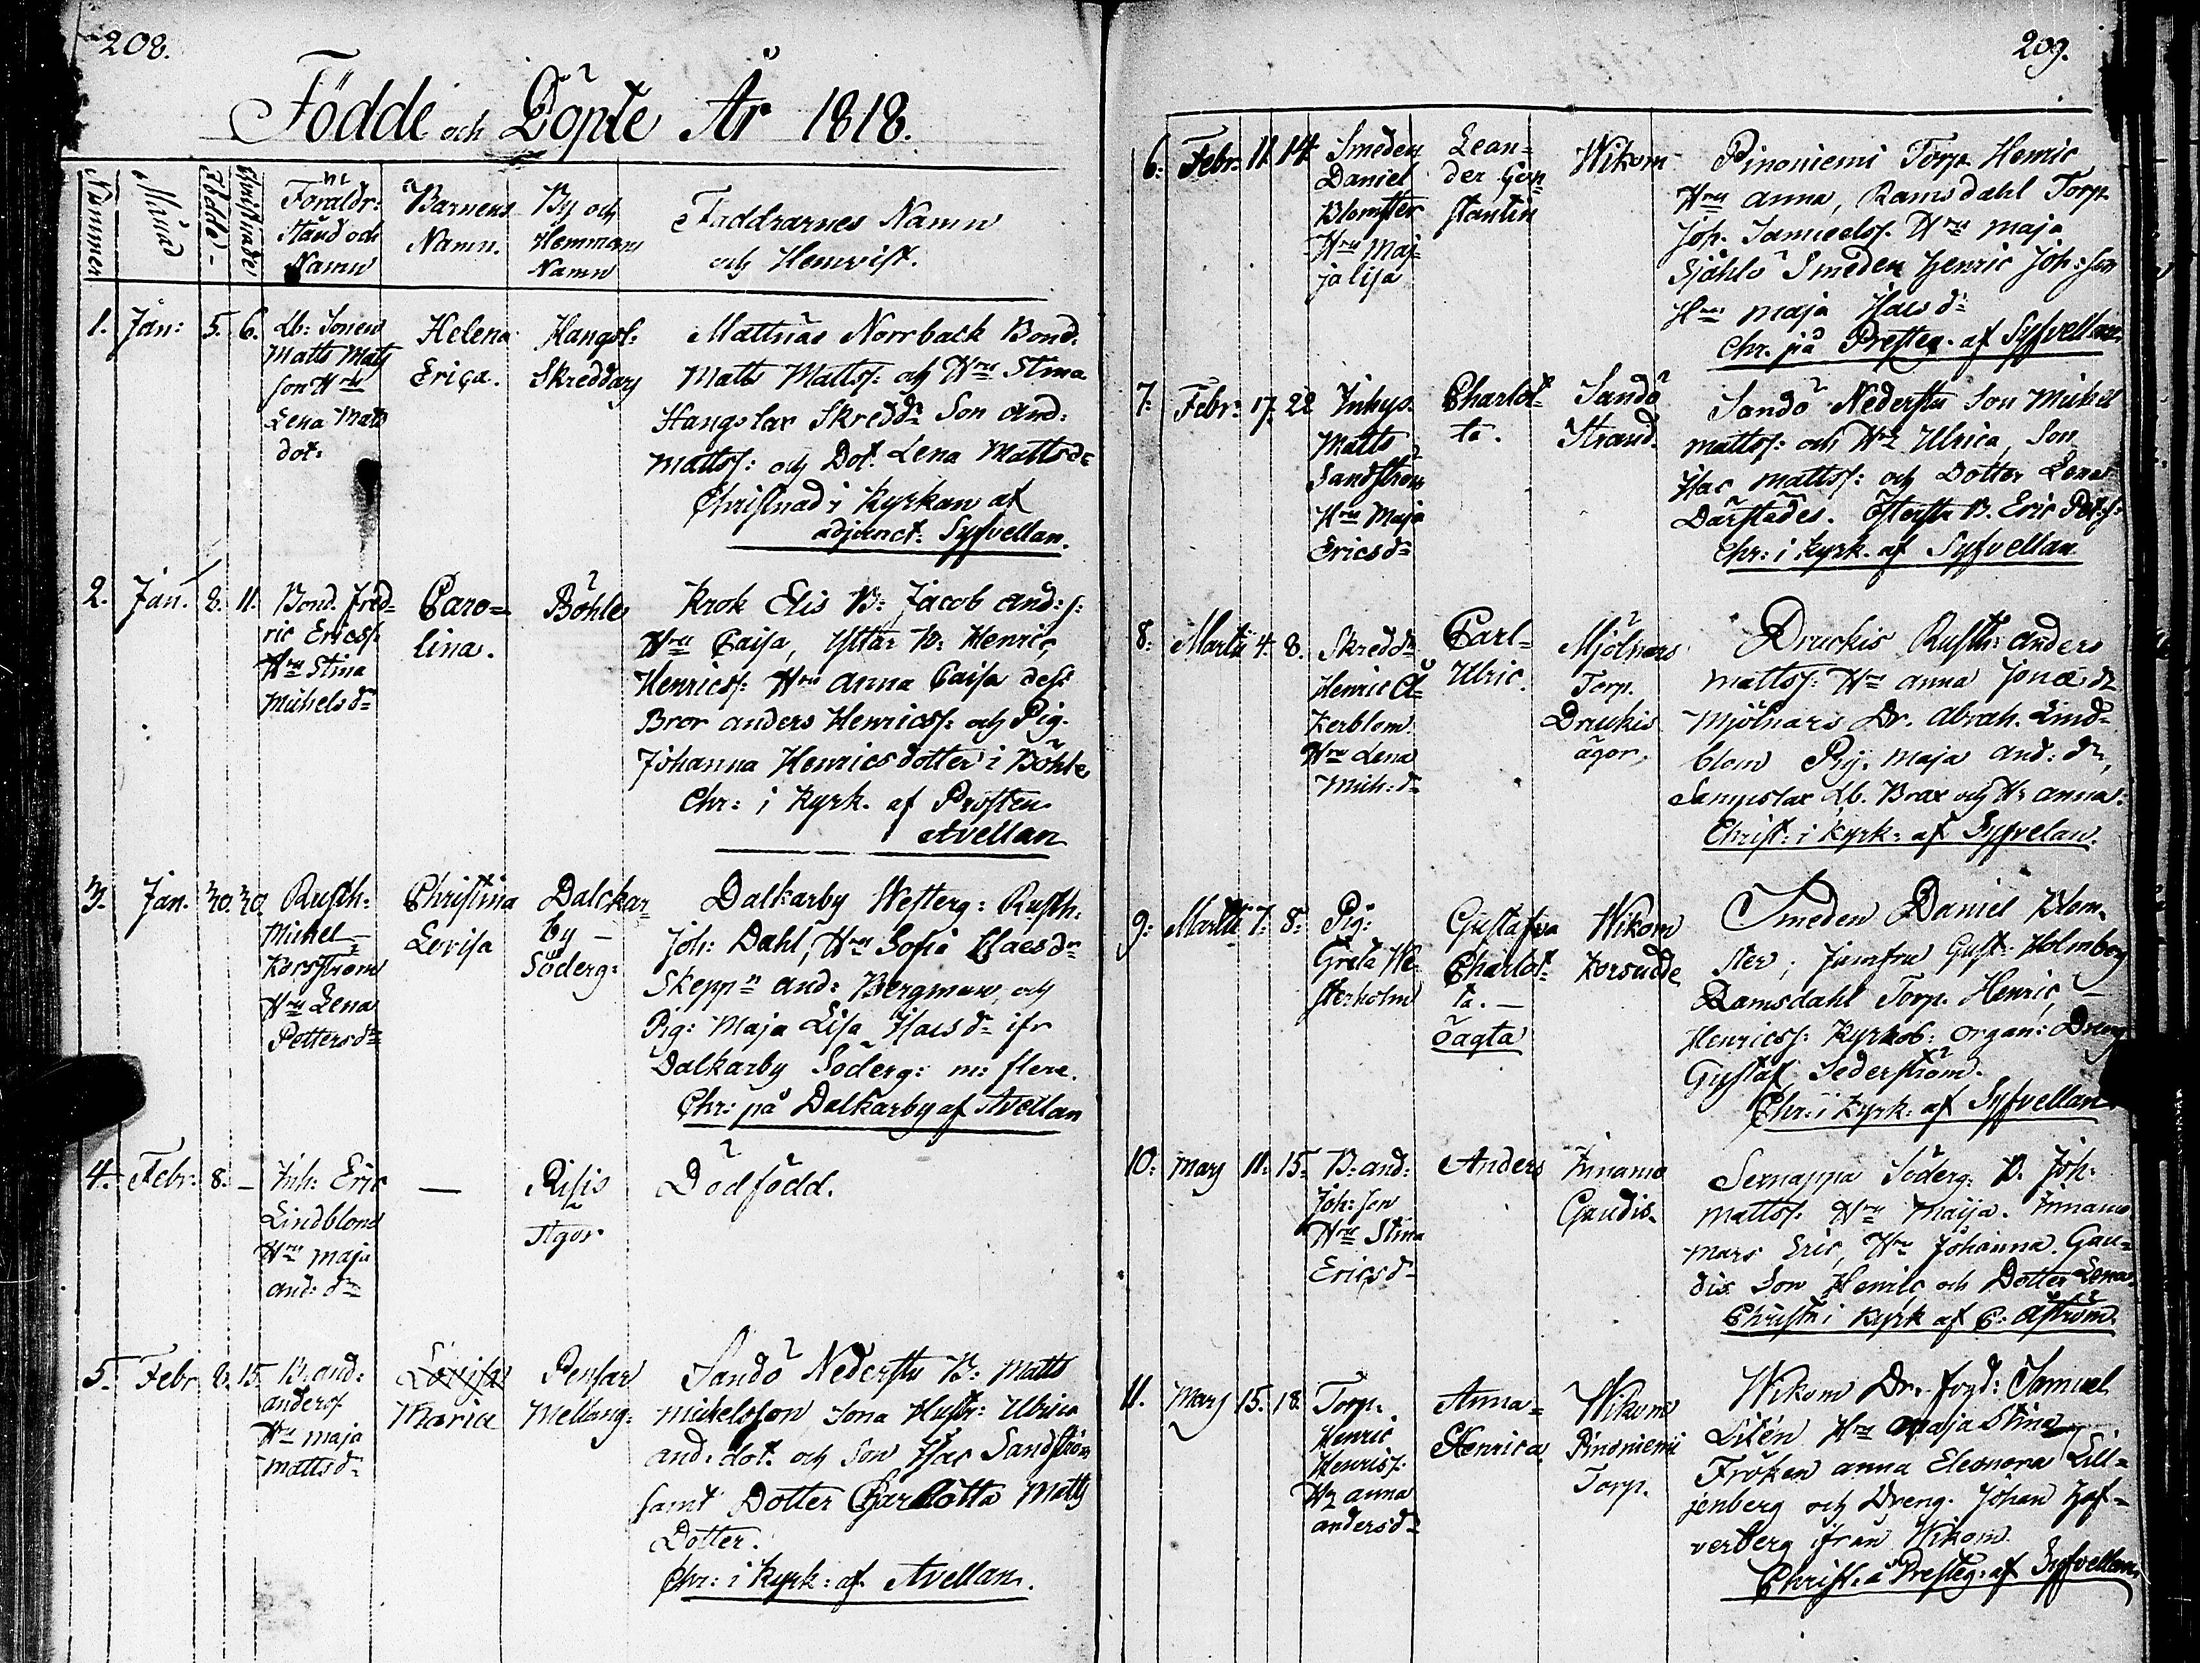 208.
Födde och Döpte År 1818.
Nummer
Månad
Födde
Christnade
Föräldr:
Stånd och
Namn
Barnens
Namn.
By och
Hemmans
Namn
Faddrarnes Namn
och Hemvist.
1. Jan: 5. 6.
Sonen
Matts Mats
son Hru
Lena Mats
dot:
Helena
Erica.
Hangsl:
Skreddars
Mattnäs Norrback Bond.
Matts Mattss: och Hru Stina
Hangslax Skredd: Son And:
Mattss: och Dot. Lena Mattsdr
Christnad i Kyrkan af
adjunct. Syfvellan.
2. Jan. 8. 11.
Bond. Fred-
ric Ericss:
Hru Stina
Michelsdr
Caro-
lina.
Böhle
Krok Elis B: Jacob And: s:
Hru Caisa, Yttar B: Henric
Henricss: Hru Anna Caisa dess
Bror Anders Henricss: och Pig.
Johanna Henricsdotter i Böhle
Chr: i Kyrk. af Prosten
Avellan
3. Jan. 30. 30.
Rusth:
Michel
Korsström
Hru Lena
Pettersdr
Christina
Lovisa
Dalckar-
by –
Söderg:
Dalkarby Westerg: Rusth:
Joh: Dahl, Hru Sofia Claesdr
Skepp: And: Bergman och
Pig: Maja Lisa Isacsdr ifr
Dalkarby Söderg: m: flere.
Chr: på Dalkarby af Avellan
4. Febr: 8. –
Inh: Eric
Lindblom
Hru Maja
And: dr
–
Risis
Ägor
Dödfödd.
5. Febr 8. 15.
B: And:
Anders:
Hru Maja
Mattsdr
Lovisa
Maria
Pensar
Mellang:
Sandö Nedersta B: Matts
Michelsson, Hustr: Ulrica
And: dot. och Son Isac Sandström
samt Dotter Charlotta Matts
Dotter.
Chr: i Kyrk: af Avellan.
209.
6: Febr: 11. 14.
Smeden
Daniel
Blomster
Hru Maj-
ja Lisa
Lean-
der Con-
stantin
Wikom
Pinoniemi Torp. Henric
Hru Anna, Ramsdahl Torp.
Joh. Samuelss: Hru Maja
Sjöhlö Smeden Henric Joh: son
Hru Maja Isacsdr
Chr. på Presteg. af Syfvellan
7: Febr: 17. 22
Inhys.
Matts
Sandström
Hru Maja
Ericsdr
Charlot-
ta.
Sandö
Strand.
Sandö Nedersta Son Michel
Mattss: och Hru Ulrica, Son
Isac Mattss: och Dotter Lena
Därstädes. Östersta B. Eric Pet: s:
Chr: i Kyrk. af Syfvellan
8: Martii 4. 8.
Skreddr
Henric Å-
kerblom
Hru Lena
Mich: dr
Carl-
Ulric.
Mjölnars
Torp.
Druckis
ägor.
Druckis Rusth: Anders
Mattss: Hru Anna Jonæ dr
Mjölnars Dr. Abrah. Lind-
blom Pig. Maja And: dr,
B. Brax och Hr Anna.
Christ: i Kyrk: af Syfvelan.
9: Martii 7. 8:
Pig:
Greta We-
sterholm
Gustafva
Charlot-
ta. –
oägta
Wikom
Korsudde
Smeden Daniel Blom-
ster, Jumfru Gust: Holmberg
Ramsdahl Torp. Henric
Henricss: Kyrkob: Organ: Dreng
Gustaf Sederström.
Chr: i Kyrk: af Syfvellan
10: Marz 11. 15.
B: And:
Joh: son
Hru Stina
Ericsdr
Anders
Innamo
Gaudis.
Sernappa Söderg: B. Joh:
Mattss: Hru Maija. Innamo
Mars Eric, Hru Johanna. Gau-
dis Son Henric och Dotter Lena
Christn: i Kyrk af C: Åström
11. Marz 15. 18.
Torp.
Henric
Henricss:
Hr Anna
Andersdr
Anna-
Henrica
Wikom
Pinoniemi
Torp.
Wikom Dr. fogd: Samuel
Litén Hru Maja Stina
Fröken Anna Eleonora Lill-
jenberg och Dreng. Johan Haf-
verberg ifrån Wikom.
Christ: å Presteg: af Syfvellan